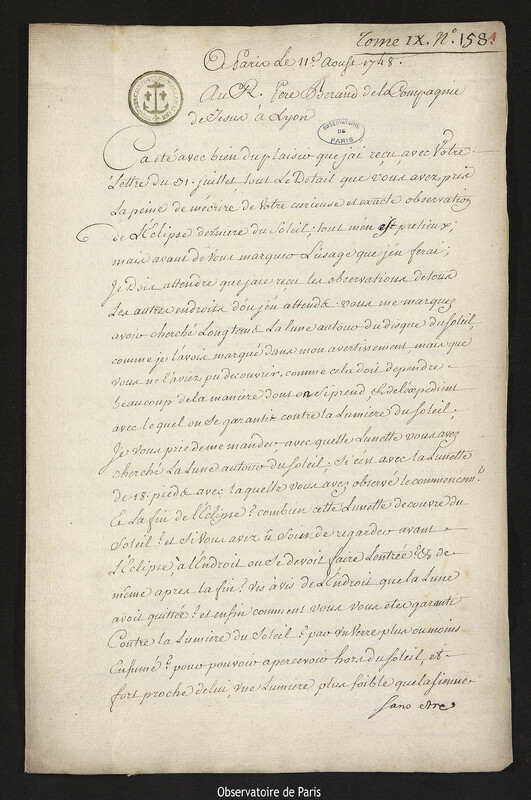 Tome IX. N.° 158.
A Paris Le 11.e Aoust 1748.
Au R. Pere Beraud de la Compagnie
de Jesus à Lyon
OBSERVATOIRE
DE
PARIS
Ca été avec bien du plaisir que jai reçu avec Votre
Lettre du 31. juillet, tout Le Détail que vous avez pris
La peine de mécrire de Votre curieuse et exacte observation
de L'Eclipse derniere du Soleil: tout m'en est pretieux;
mais avant de Vous marquer L'usage que j'en ferai;
Je Dois attendre que j'aie reçu les observations de tous
Les autres endroits d'ou j'en attends. vous me marquez
avoir cherché Longtems La lune autour du disque du Soleil,
comme je l'avois marqué dans mon avertinement, mais que
vous ne l'aviez pu decouvrir. comme cela doit dependre
beaucoup de la maniere dont on s'i prend, et de l'expedient
avec le quel on se garantit contre la Lumiere du Soleil;
Je vous prie de me mander avec quelle Lunette vous avez
cherché La Lune autour du Soleil. Si c'en avec la Lunette
de 18. pieds avec laquelle vous avez observé le commencem.t
Et La fin de l'Eclipse? combien cette Lunette decouvre du
Soleil? et si Vous avez eu Soin de regarder avant
L'Eclipse, à L'endroit ou se devoit faire L'entrée? & de
même apres la fin? Vis à vis de L'endroit que la Lune
avoit quittée? et enfin comment vous vous etes garanti
Contre la Lumiere du Soleil? par un Verre plus ou moins
Enfumé? pour pouvoir apercevoir hors du Soleil, et
fort proche de lui, une Lumiere plus foible que la sienne
sans etre
Observatoire de Paris